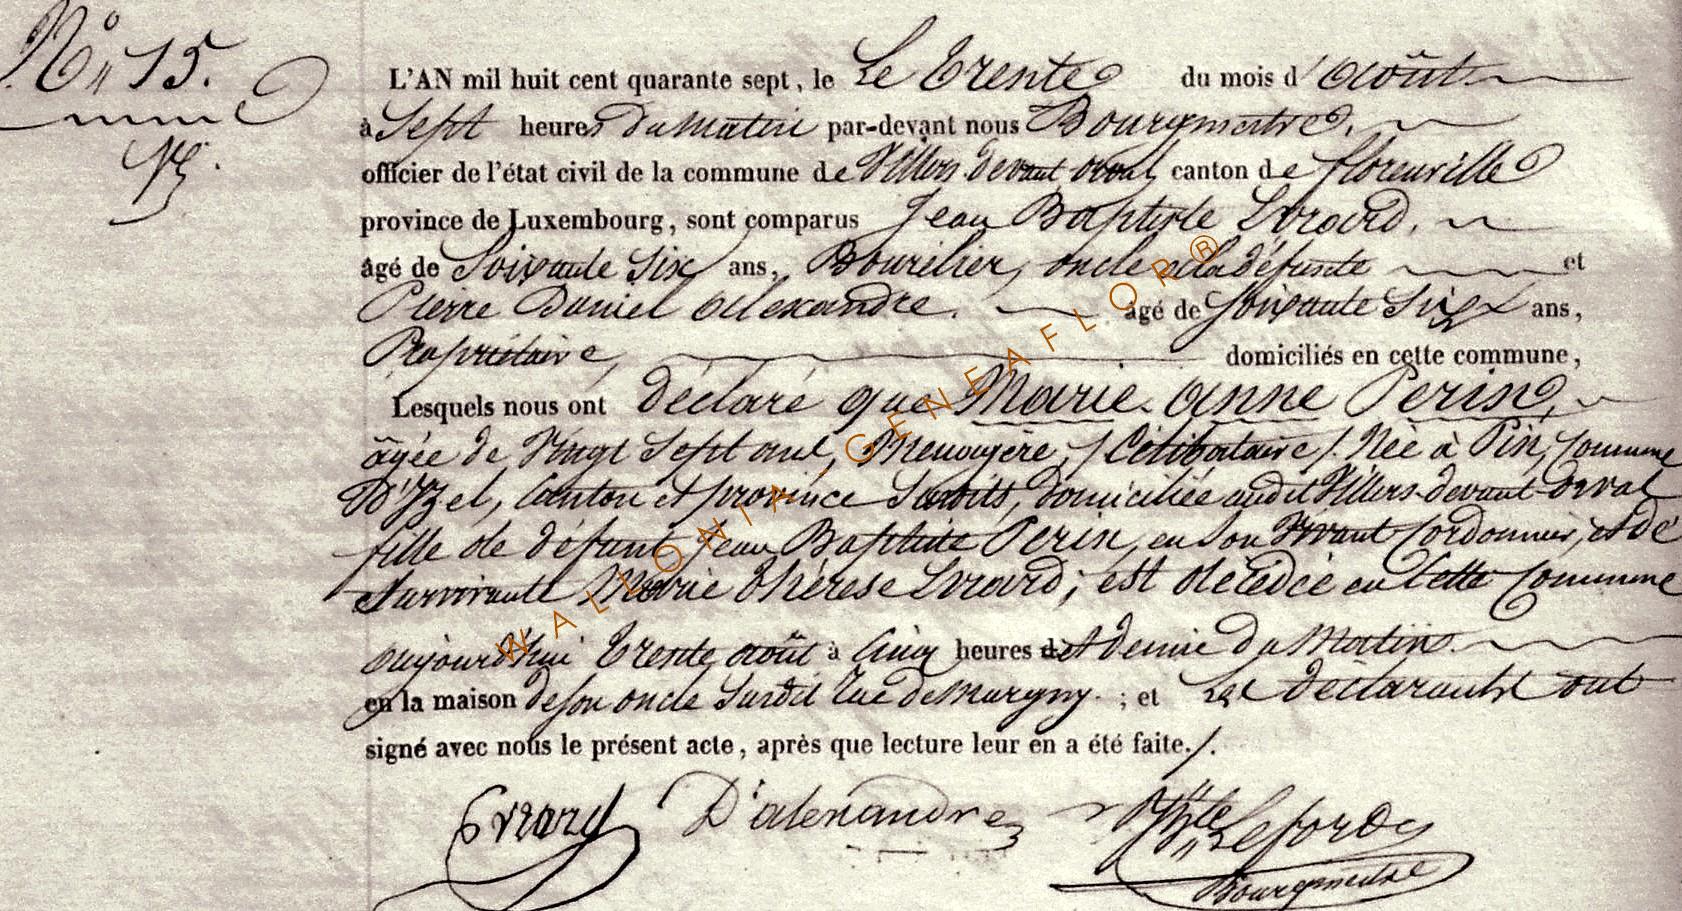 N° 15.
L'AN mil huit cent quarante sept, le Le Trente du mois d'août
à Sept heures du Matin par-devant nous Bourgmestre.
officier de l'état civil de la commune de Villers devant orval canton de florenville
province de Luxembourg, sont comparus Jean Baptiste Evrard.
âgé de Soixante Six ans, Bourélier, oncle à la défunte et
Pierre Daniel Allexandre. âgé de Soixante Six ans,
Propriétaire, domiciliés en cette commune,
Lesquels nous ont déclaré que Marie-Anne Perin,
âgée de Vingt Sept ans, Menagère, /Célibataire/. Née à Pin, Commune
D'Izel, Canton et province Susdits, domiciliée audit Villers-devant-orval
fille de défunt Jean Baptiste Perin, en Son Vivant Cordonnier, et de
Survivante Marie Thérèse Evrard; est décédée en Cette Commune
aujourd'hui Trente août à Cinq heures et demie du Matin.
en la maison de son oncle Susdit rue de Margny. ; et Les déclarants ont
signé avec nous le présent acte, après que lecture leur en a été faite./.
Evrard D'alexandre Lefords
Bourgmestre
WALLONIA-GENEAFLOR®